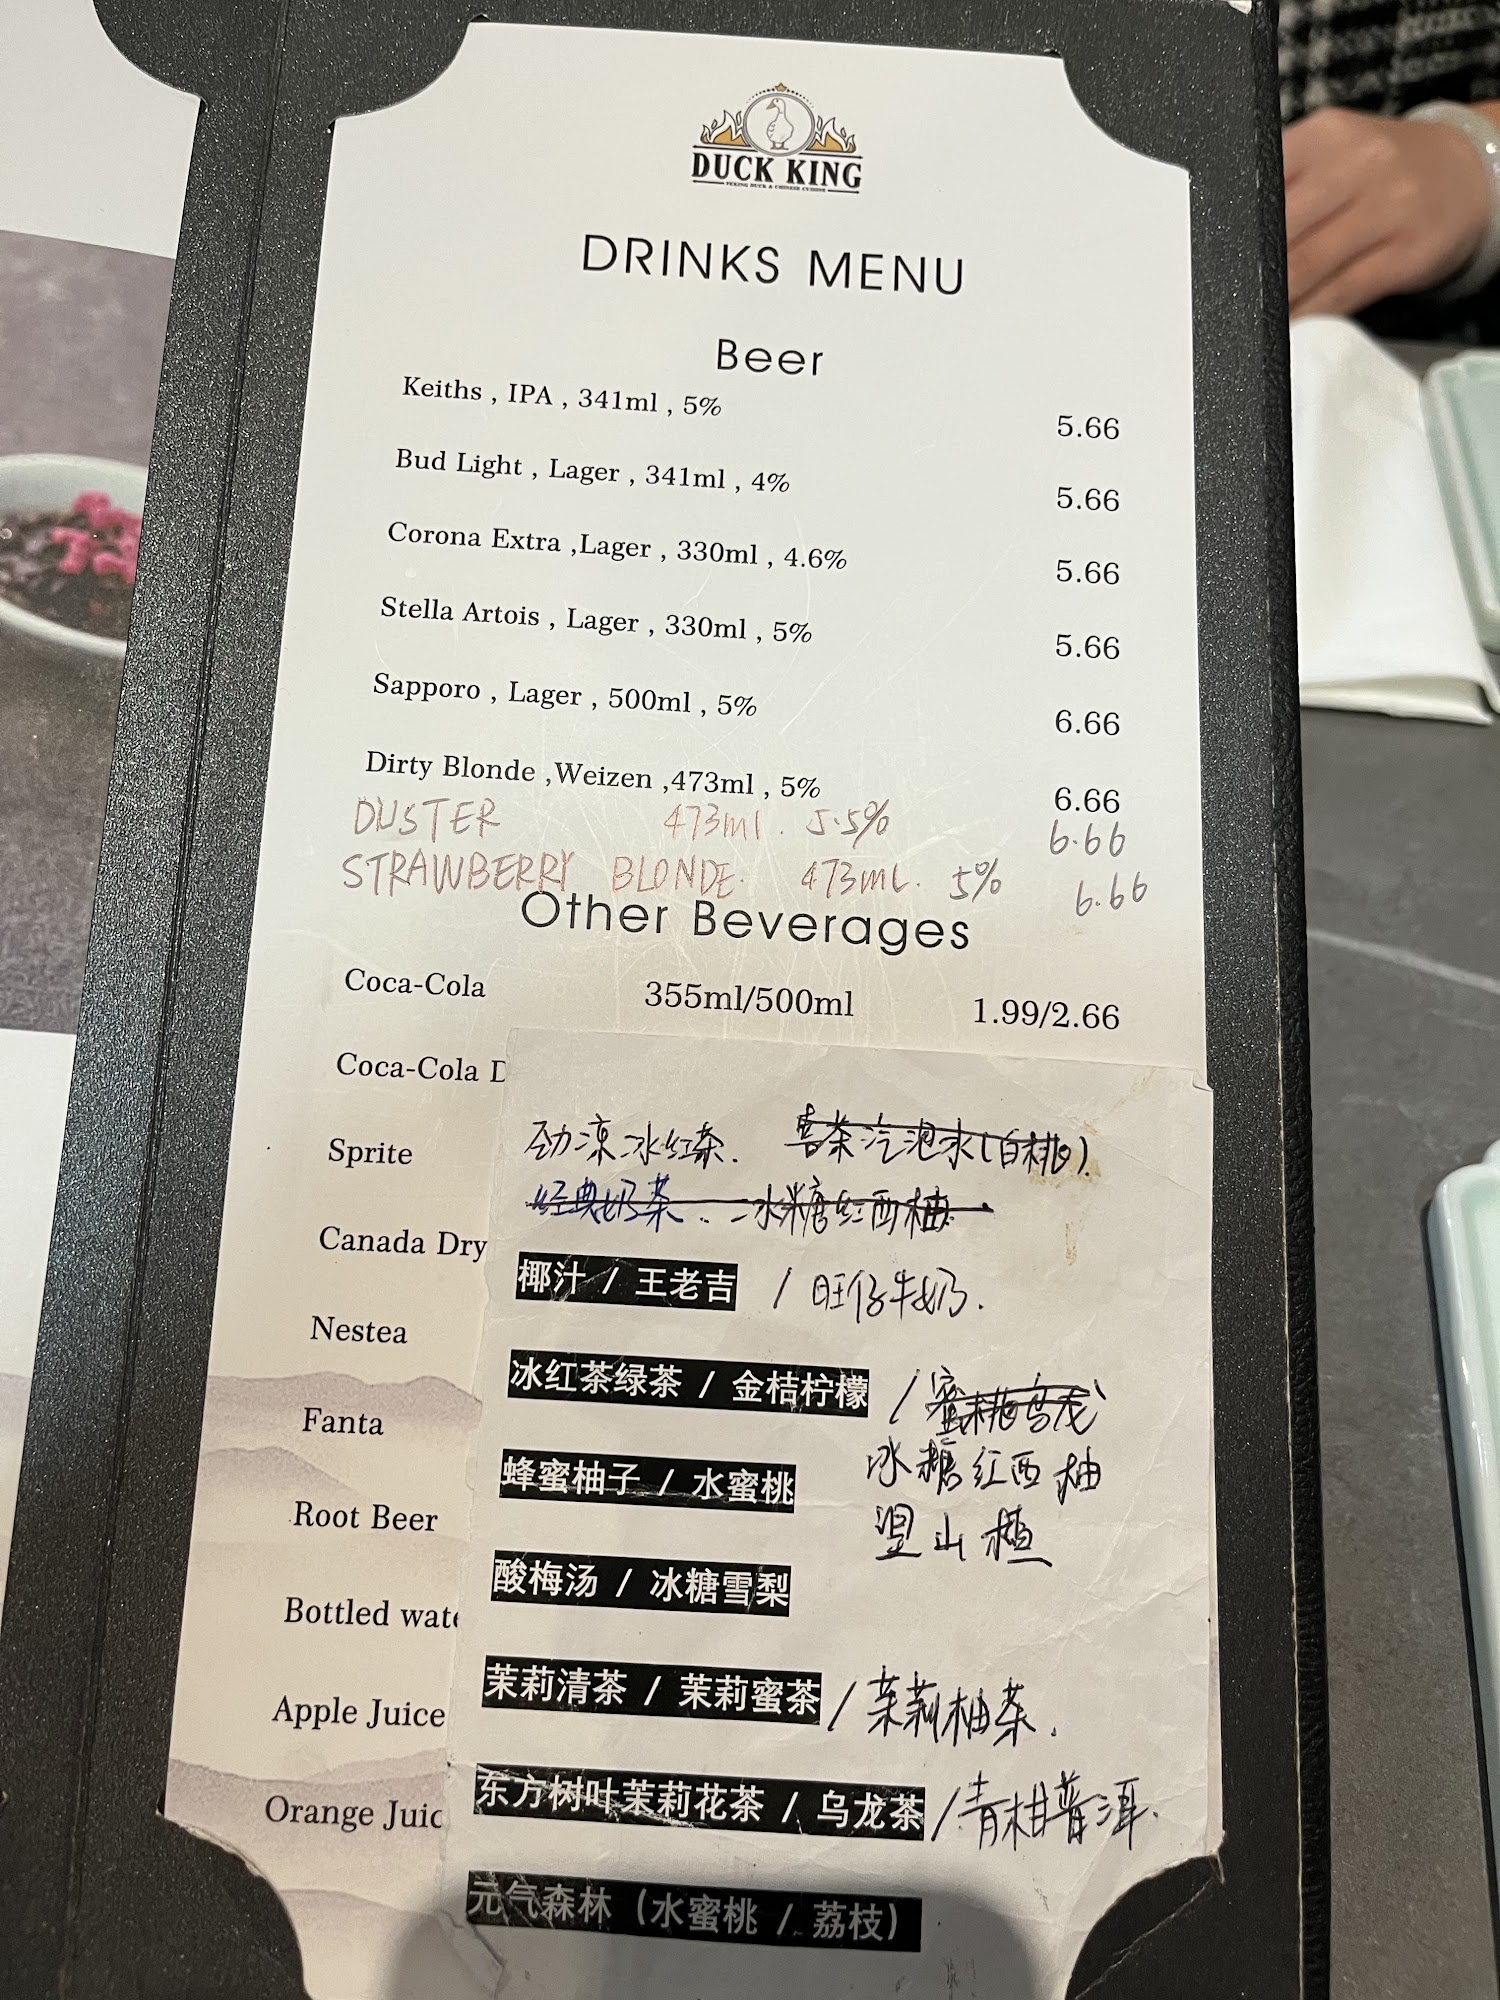 DUCK KING
PEKING DUCK & CHINESE CUISINE
DRINKS MENU
Beer
Keiths , IPA , 341ml , 5% 5.66
Bud Light , Lager , 341ml , 4% 5.66
Corona Extra ,Lager , 330ml , 4.6% 5.66
Stella Artois , Lager , 330ml , 5% 5.66
Sapporo , Lager , 500ml , 5% 6.66
Dirty Blonde ,Weizen ,473ml , 5% 6.66
DUSTER 473ml. 5.5% 6.66
STRAWBERRY BLONDE. 473ml. 5% 6.66
Other Beverages
Coca-Cola 355ml/500ml 1.99/2.66
Coca-Cola D
Sprite
Canada Dry
Nestea
Fanta
Root Beer
Bottled wate
Apple Juice
Orange Juic
劲凉冰红茶. 喜茶汽泡水(白桃).
经典奶茶.. 冰糖红西柚
椰汁 / 王老吉 / 旺仔牛奶.
冰红茶绿茶 / 金桔柠檬 / 蜜桃乌龙
冰糖红西柚
蜂蜜柚子 / 水蜜桃
山楂
酸梅汤 / 冰糖雪梨
茉莉清茶 / 茉莉蜜茶 / 茉莉柚茶.
东方树叶茉莉花茶 / 乌龙茶 / 青柑普洱.
元气森林（水蜜桃 / 荔枝）